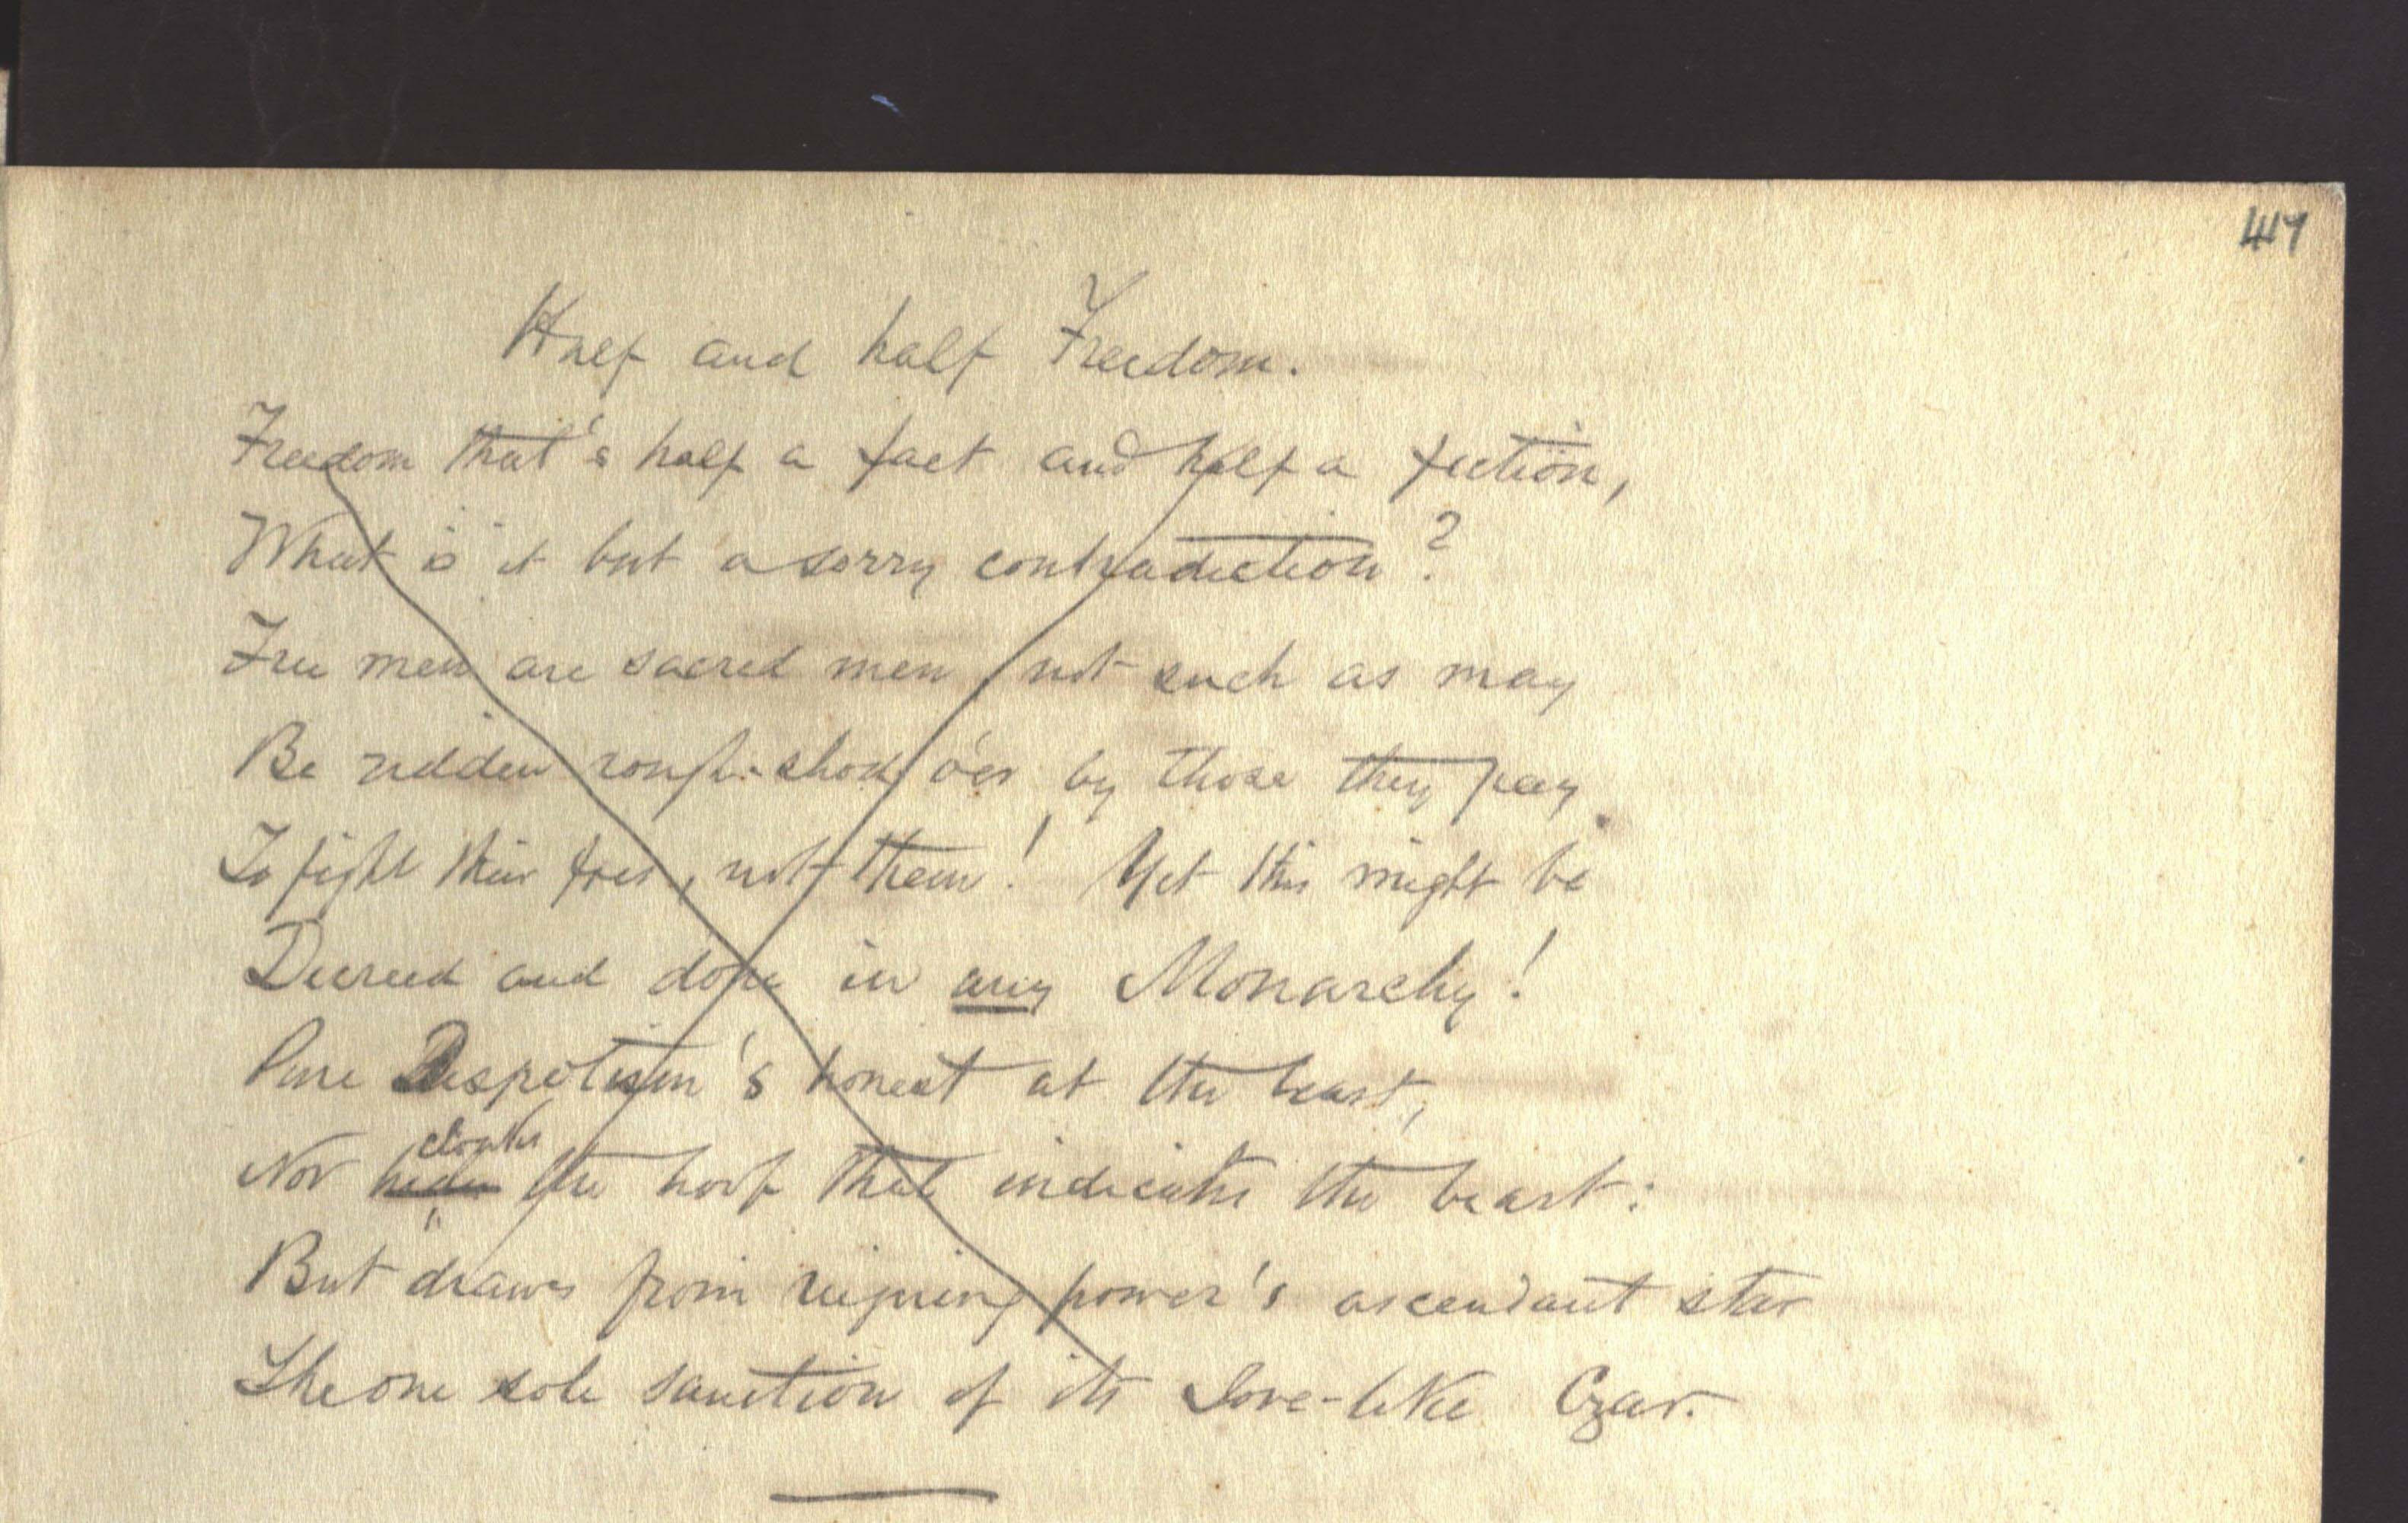 47
Half and half Freedom.
Freedom that's half a fact and half a fiction,
What is it but a sorry contradiction?
Free men are sacred men, not such as may
Be ridden rough-shod o'er by those they pay
To fight their foes, not them! Yet this might be
Decreed and done in any Monarchy!
Pure Despotism's honest at the least,
cloaks
Nor hides the hoof that indicates the beast:
But draws from reigning power's ascendant star
The one sole sanction of its Jove-like Czar.